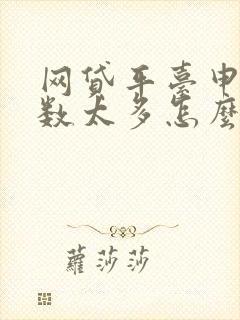 网贷平臺申
数太多怎麼
蘿莎莎